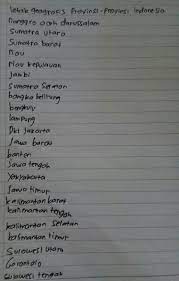 letak geografis Provinsi-Provinsi Indonesia
Nanggro aceh darussalam
Sumatra utara
Sumatra barat
Riau
Riau kepulauan
Jambi
Sumatra Selatan
bangka belitung
bengkulu
lampung
Dki Jakarta
Jawa barat
banten
Jawa tengah
Yogyakarta
Jawa timur
kalimantan barat
kalimantan tengah
kalimantan selatan
kalimantan timur
Sulawesi Utara
Gorontalo
Sulawesi tengah